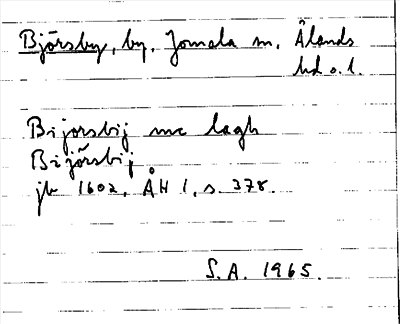 Björsby, by, Jomala sn, Ålands
hd o. l.
Bijorsbij me lagh
Bijörsbij
jb 1602, ÅH 1, s. 378.
S. A. 1965.